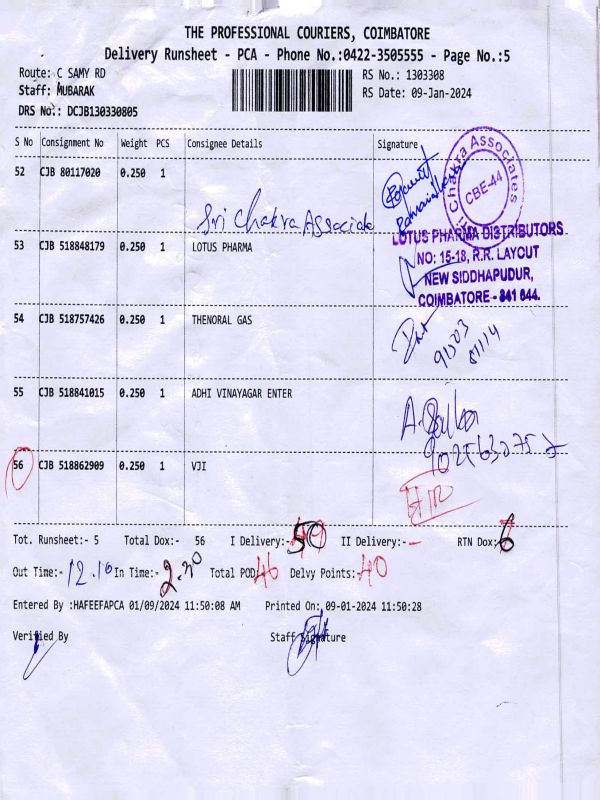 THE PROFESSIONAL COURIERS, COIMBATORE
Delivery Runsheet - PCA - Phone No.:0422-3505555 - Page No.:5
Route: C SAMY RD RS No.: 1303308
Staff: MUBARAK RS Date: 09-Jan-2024
DRS No.: DCJB130330805
S No Consignment No Weight PCS Consignee Details Signature
52 CJB 80117020 0.250 1
Sri Chakra Associate
Chakra Associates
CBE-44
53 CJB 518848179 0.250 1 LOTUS PHARMA
LOTUS PHARMA DISTRIBUTORS
NO: 15-18, R.R. LAYOUT
NEW SIDDHAPUDUR,
COIMBATORE - 641 044.
54 CJB 518757426 0.250 1 THENORAL GAS
55 CJB 518841015 0.250 1 ADHI VINAYAGAR ENTER
56 CJB 518862909 0.250 1 VJI
Tot. Runsheet:- 5 Total Dox:- 56 I Delivery:- 50 II Delivery:- - RTN Dox: 6
Out Time:- 12.10 In Time:- 2.30 Total POD: 40 Delvy Points:- 40
Entered By :HAFEEFAPCA 01/09/2024 11:50:08 AM Printed On: 09-01-2024 11:50:28
Verified By Staff Signature